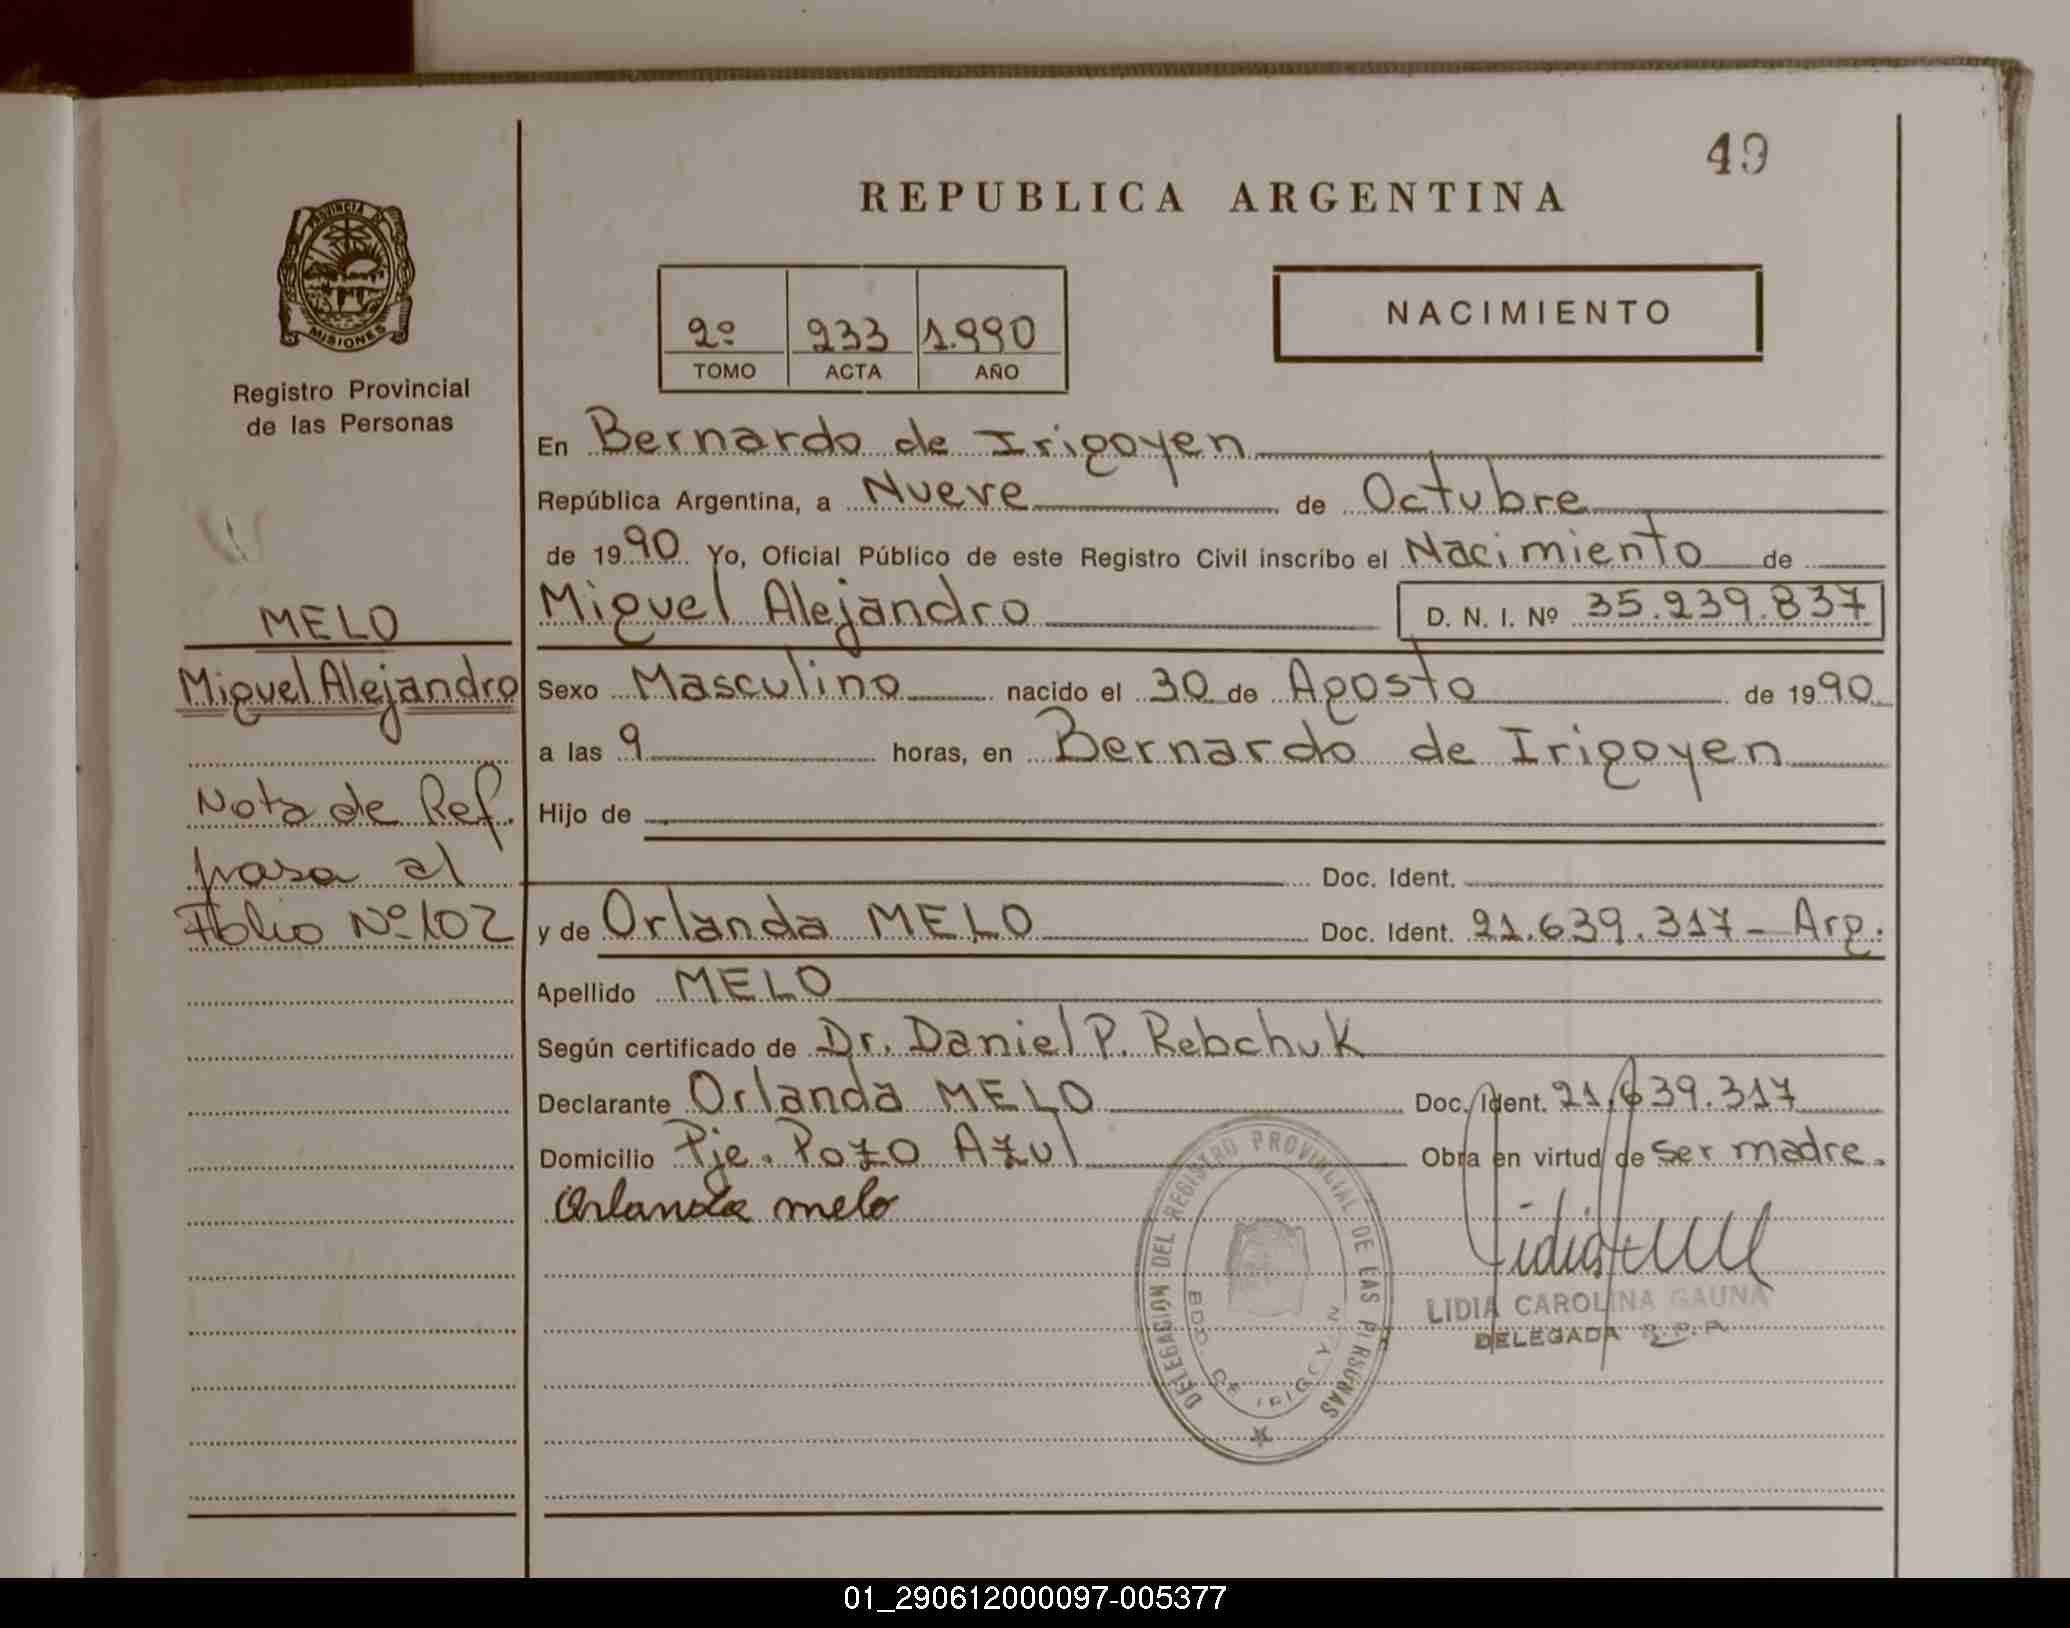 49
REPUBLICA ARGENTINA
PROVINCIA DE
MISIONES
Registro Provincial
de las Personas
2º 233 1.990
TOMO ACTA AÑO
NACIMIENTO
En Bernardo de Irigoyen
República Argentina, a Nueve de Octubre
de 1990 Yo, Oficial Público de este Registro Civil inscribo el Nacimiento de
Miguel Alejandro D. N. I. Nº 35.239.837
MELO
Miguel Alejandro
Sexo Masculino nacido el 30 de Agosto de 1990
a las 9 horas, en Bernardo de Irigoyen
Nota de Ref.
pasa al
Folio Nº 102
Hijo de
Doc. Ident.
y de Orlanda MELO Doc. Ident. 21.639.317 - Arg.
Apellido MELO
Según certificado de Dr. Daniel P. Rebchuk
Declarante Orlanda MELO Doc. Ident. 21.639.317
Domicilio Pje. Pozo Azul Obra en virtud de ser madre.
Orlanda melo
DELEGACION DEL REGISTRO PROVINCIAL DE LAS PERSONAS
BDO. DE IRIGOYEN
LIDIA CAROLINA GAUNA
DELEGADA R.P.P.
01_290612000097-005377